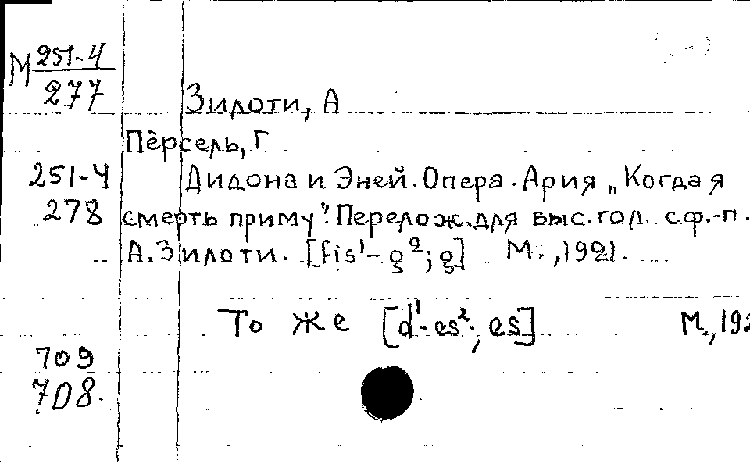 М 251-4
277
Зилоти, А
Пёрселль, Г
251-4 Дидона и Эней. Опера. Ария „Когда я
278 смерть приму". Перелож. для выс. гол. с ф.-п.
А. Зилоти. [fis¹-g²; g] М., 1921.
То же [d¹-es²; es] М., 192
709
708.